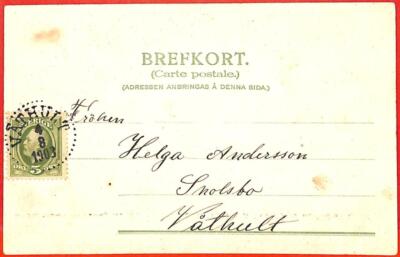 BREFKORT.
(Carte postale.)
(ADRESSEN ANBRINGAS Å DENNA SIDA.)
VÅTHULT
4
8
1903
5
Fröken
Helga Andersson
Snolsbo
Våthult